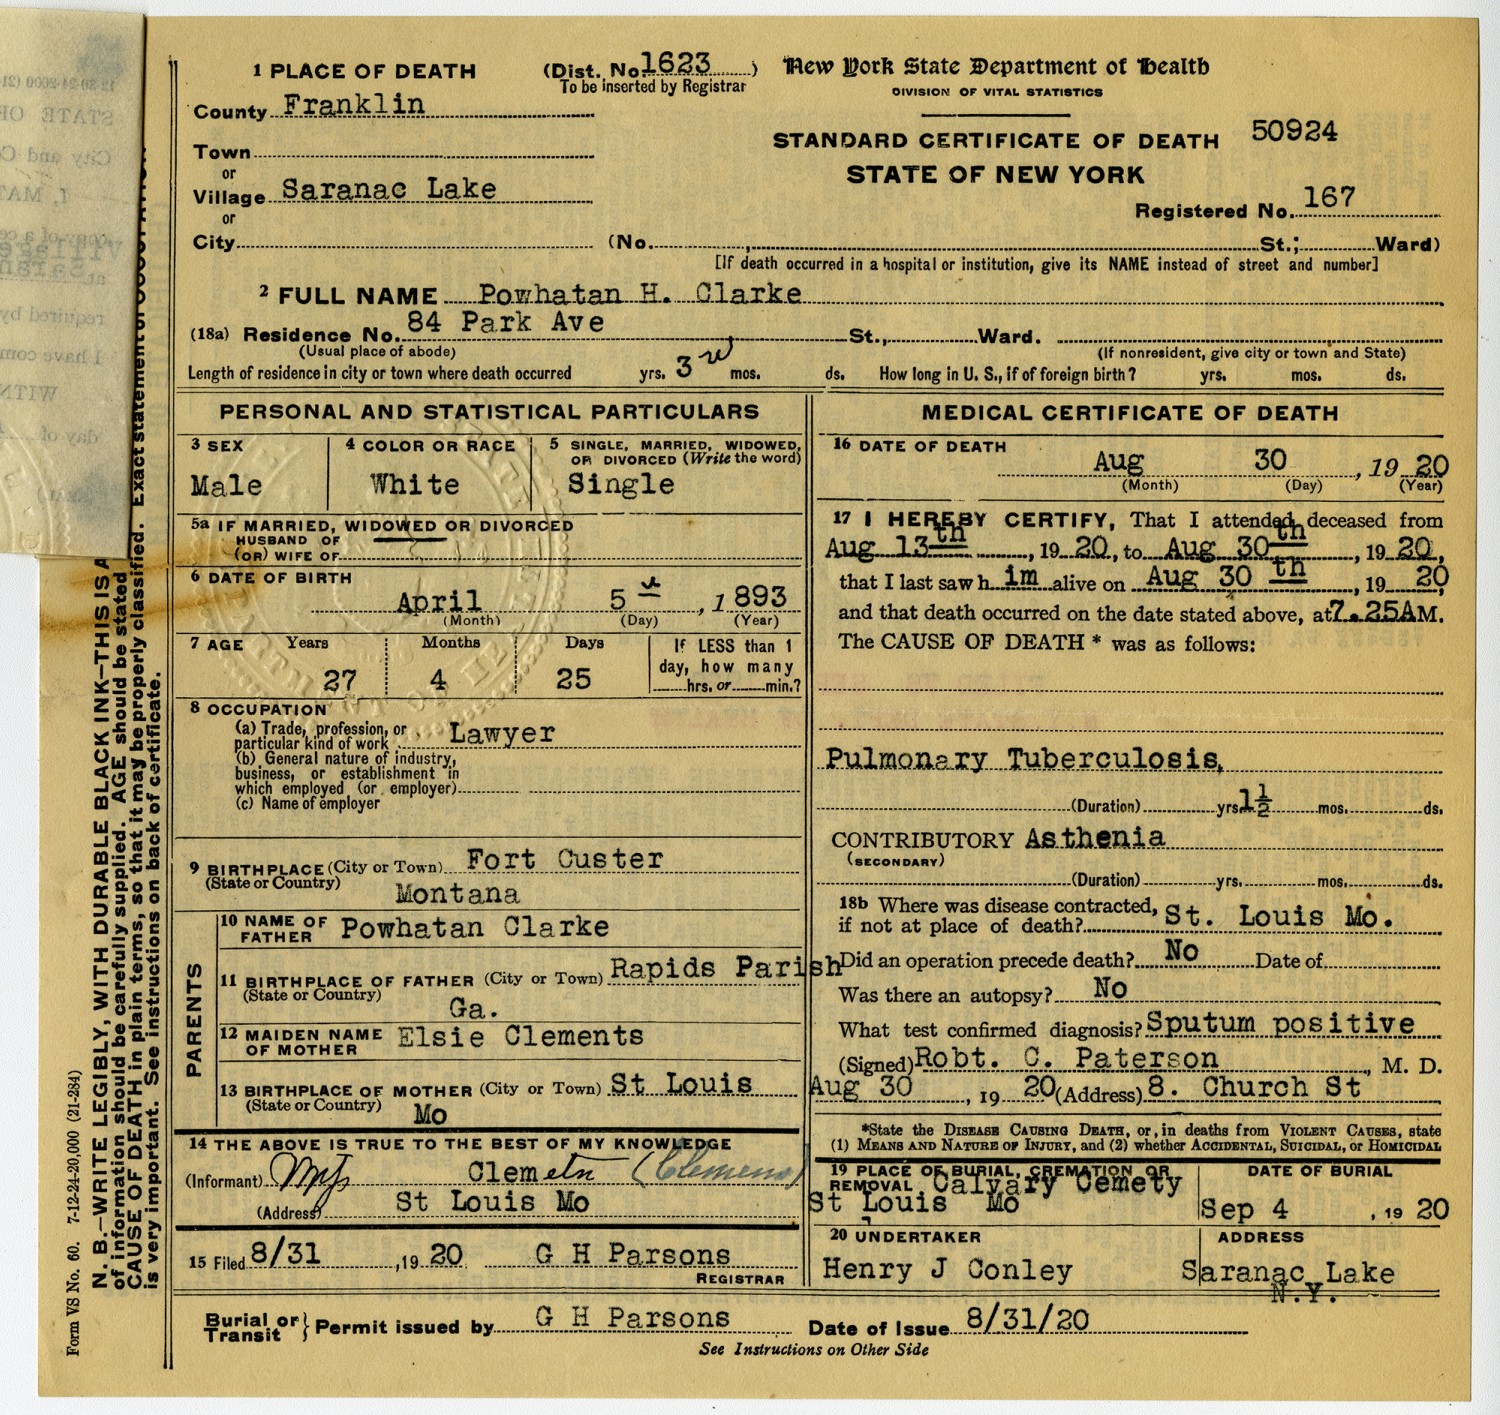 1 PLACE OF DEATH (Dist. No. 1623 )
To be inserted by Registrar
New York State Department of Health
DIVISION OF VITAL STATISTICS
County Franklin
STANDARD CERTIFICATE OF DEATH 50924
STATE OF NEW YORK
Town
or
Village Saranac Lake
or
Registered No. 167
City (No. , St.; Ward)
[If death occurred in a hospital or institution, give its NAME instead of street and number]
2 FULL NAME Powhatan H. Clarke
(18a) Residence No. 84 Park Ave St., Ward.
(Usual place of abode) (If nonresident, give city or town and State)
Length of residence in city or town where death occurred yrs. 3 mos. ds. How long in U. S., if of foreign birth? yrs. mos. ds.
PERSONAL AND STATISTICAL PARTICULARS
3 SEX
Male
4 COLOR OR RACE
White
5 SINGLE, MARRIED, WIDOWED,
OR DIVORCED (Write the word)
Single
5a IF MARRIED, WIDOWED OR DIVORCED
HUSBAND OF
(OR) WIFE OF
6 DATE OF BIRTH
April 5 , 1 893
(Month) (Day) (Year)
7 AGE Years Months Days
27 4 25
If LESS than 1
day, how many
hrs. or min.?
8 OCCUPATION
(a) Trade, profession, or
particular kind of work Lawyer
(b) General nature of industry,
business, or establishment in
which employed (or employer)
(c) Name of employer
9 BIRTHPLACE (City or Town) Fort Custer
(State or Country) Montana
PARENTS
10 NAME OF
FATHER Powhatan Clarke
11 BIRTHPLACE OF FATHER (City or Town) Rapids Parish
(State or Country) Ga.
12 MAIDEN NAME
OF MOTHER Elsie Clements
13 BIRTHPLACE OF MOTHER (City or Town) St Louis
(State or Country) Mo
14 THE ABOVE IS TRUE TO THE BEST OF MY KNOWLEDGE
(Informant) Clemetn (Clemens)
(Address) St Louis Mo
15 Filed 8/31 ,19 20 G H Parsons
REGISTRAR
MEDICAL CERTIFICATE OF DEATH
16 DATE OF DEATH
Aug 30 , 19 20
(Month) (Day) (Year)
17 I HEREBY CERTIFY, That I attended deceased from
Aug 13th , 19 20, to Aug 30th , 19 20,
that I last saw h im alive on Aug 30 th , 19 20,
and that death occurred on the date stated above, at 7.25A M.
The CAUSE OF DEATH * was as follows:
Pulmonary Tuberculosis,
(Duration) yrs. 1½ mos. ds.
CONTRIBUTORY Asthenia
(SECONDARY)
(Duration) yrs. mos. ds.
18b Where was disease contracted,
if not at place of death? St. Louis Mo.
Did an operation precede death? No Date of
Was there an autopsy? No
What test confirmed diagnosis? Sputum positive
(Signed) Robt. C. Paterson , M. D.
Aug 30 , 19 20 (Address) 8. Church St
*State the DISEASE CAUSING DEATH, or, in deaths from VIOLENT CAUSES, state
(1) MEANS AND NATURE OF INJURY, and (2) whether ACCIDENTAL, SUICIDAL, or HOMICIDAL
19 PLACE OF BURIAL, CREMATION OR
REMOVAL Calvary Cemety
St Louis Mo
DATE OF BURIAL
Sep 4 , 19 20
20 UNDERTAKER
Henry J Conley
ADDRESS
Saranac Lake
N.Y.
Burial or
Transit } Permit issued by G H Parsons Date of Issue 8/31/20
See Instructions on Other Side
N. B.—WRITE LEGIBLY, WITH DURABLE BLACK INK—THIS IS A
of information should be carefully supplied. AGE should be stated
CAUSE OF DEATH in plain terms, so that it may be properly classified. Exact statement of
is very important. See instructions on back of certificate.
Form VS No. 60. 7-12-24-20,000 (21-284)